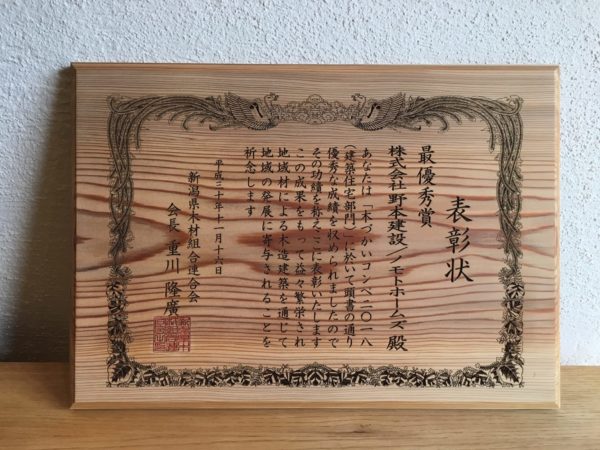 表彰状
最優秀賞
株式会社 野本建設／ノモトホームズ 殿
あなたは「木づかいコンペ二〇一八
（建築住宅部門）」に於いて頭書の通り
優秀な成績を収められましたので
その功績を称えここに表彰いたします
この成果をもって益々繁栄され
地域材による木造建築を通じて
地域の発展に寄与されることを
祈念します
平成三十年十一月十六日
新潟県木材組合連合会
会長 重川 隆廣